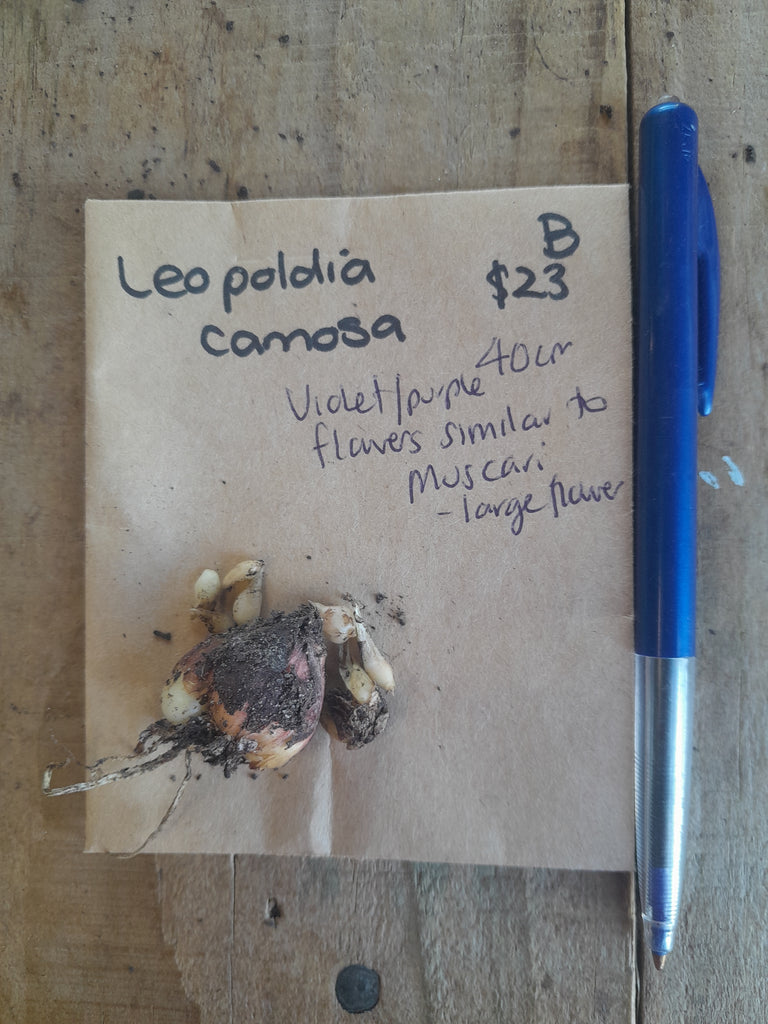 Leopoldia
B
$23
camosa
40cm
Violet/purple
flowers similar to
Muscari
- large flower